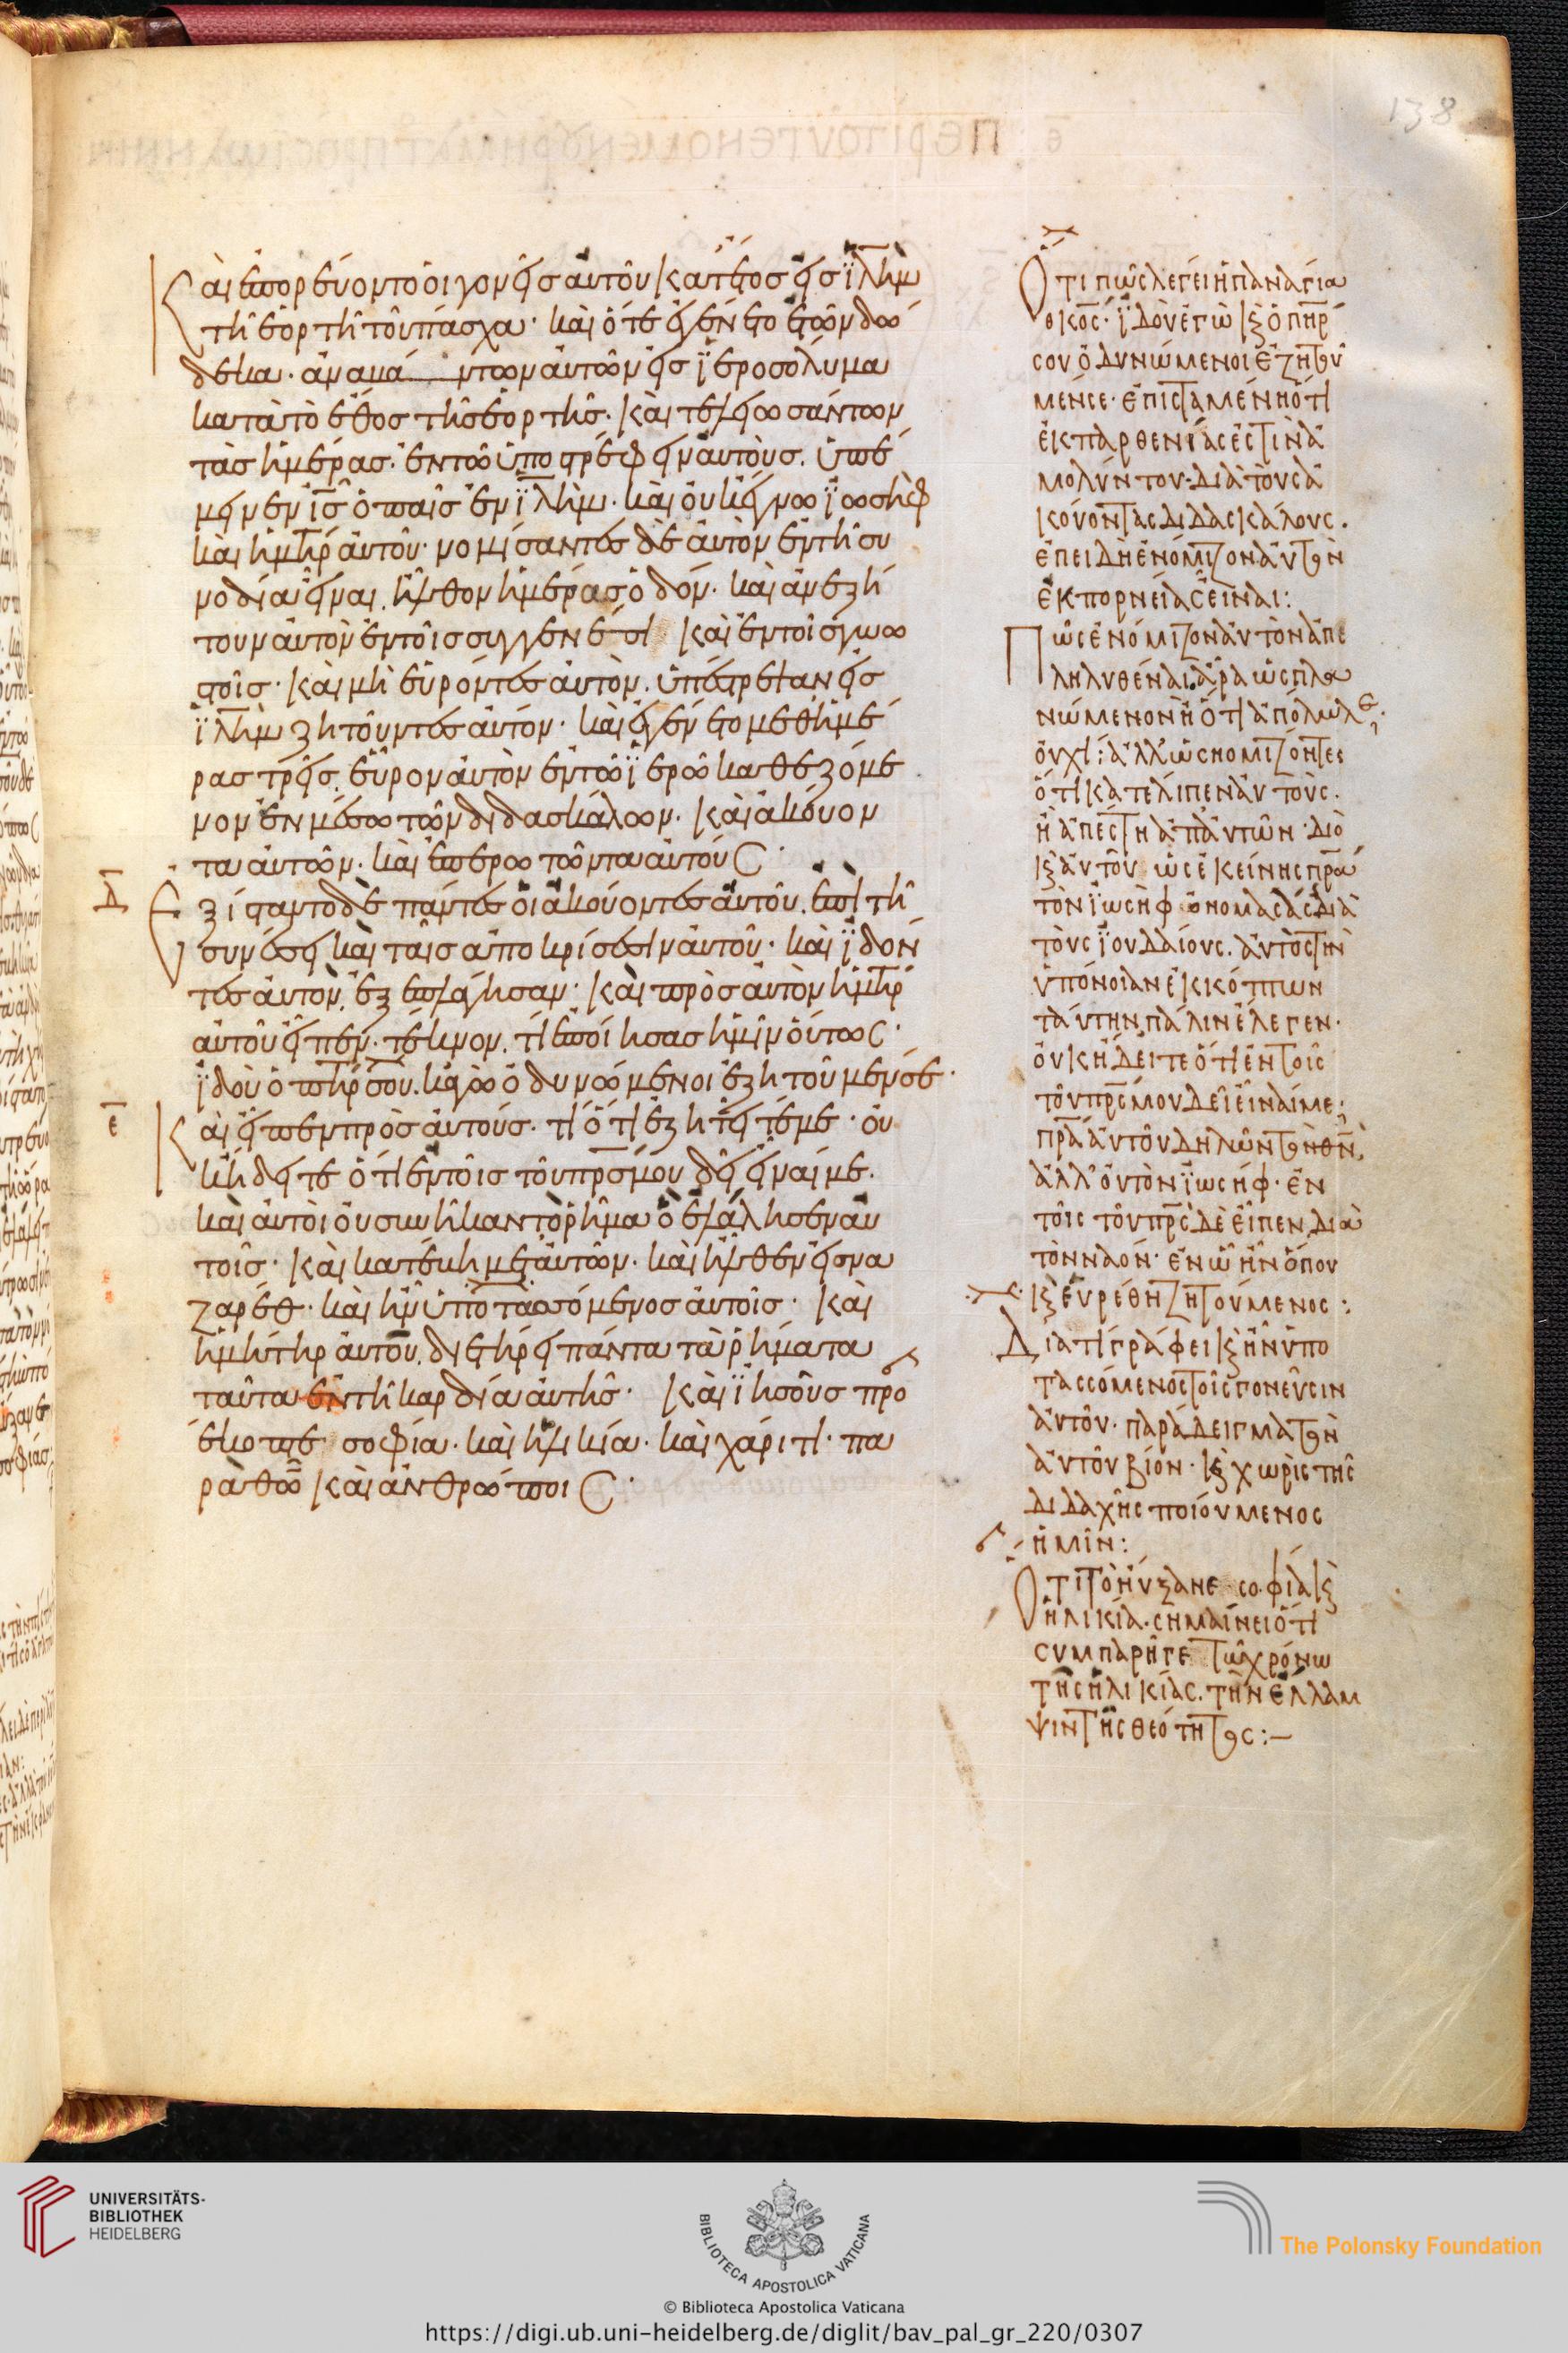 138
Καὶ ἐπορεύοντο οἱ γονεῖς αὐτοῦ κατ ἔτος εἰς ϊλημ
τῆ ἑορτῆ τοῦ πάσχα· καὶ ὅτε ἐγένετο ἐτῶν δώ
δεκα· ἀναβάντων αὐτῶν εἰς ϊεροσόλυμα
κατὰ τὸ ἔθος τῆς ἑορτῆς· καὶ τελειωσάντων
τὰς ἡμέρας· ἐν τῶ ὑποστρέφειν αὐτοὺς. ὑπέ
μεινεν ις ὁ παῖς ἐν ϊλημ· καὶ οὐκ ἔγνω ϊωσὴφ
καὶ ἡ μηρ αὐτοῦ· νομίσαντες δὲ αὐτὸν ἐν τῆ συ
νοδία εἶναι. ἦλθον ἡμέρας ὁδόν· καὶ ἀνεζή
τουν αὐτὸν ἐν τοῖς συγγενέσι καὶ ἐν τοῖς γνω
στοῖς· καὶ μὴ εὑρόντες αὐτὸν. ὑπέστρεψαν εἰς
ϊλημ ζητοῦντες αὐτόν· καὶ ἐγένετο μεθ ἡμέ
ρας τρεῖς. εὗρον αὐτὸν ἐν τῶ ϊερῶ καθεζόμε
νον ἐν μέσω τῶν διδασκάλων· καὶ ἀκούον
τα αὐτῶν· καὶ ἐπερωτῶντα αὐτούς·
Δ
Ἐξίσταντο δὲ πάντες οἱ ἀκούοντες αὐτοῦ. ἐπὶ τῆ
συνέσει καὶ ταῖς ἀποκρίσεσιν αὐτοῦ· καὶ ϊδόν
τες αὐτὸν. ἐξεπλάγησαν· καὶ πρὸς αὐτὸν ἡ μηρ
αὐτοῦ εἶπεν· τέκνον. τί ἐποίησας ἡμῖν οὕτως·
ϊδοὺ ὁ πηρ σου. κἀγὼ ὀδυνώμενοι ἐζητοῦμέν σε·
ε
Καὶ εἶπεν πρὸς αὐτούς· τί ὅτι ἐζητεῖτέ με· οὐ
κ ἤδειτε ὅτι ἐν τοῖς τοῦ πρσ μου δεῖ εἶναί με·
καὶ αὐτοὶ οὐ συνῆκαν τὸ ῥῆμα ὃ ἐλάλησεν αὐ
τοῖς· καὶ κατέβη μετ αὐτῶν· καὶ ἦλθεν εἰς να
ζαρέθ· καὶ ἦν ὑποτασσόμενος αὐτοῖς· καὶ
ἡ μήτηρ αὐτοῦ. διετήρει πάντα τὰ ῥήματα
ταῦτα ἐν τῆ καρδία αὐτῆς· καὶ ϊησοῦς προ
έκοπτε σοφία· καὶ ἡλικία· καὶ χάριτι· πα
ρὰ θω καὶ ἀνθρώποις·
Ὅτι πῶς λέγει ἡ παναγία
θκος· ϊδοὺ ἐγὼ κ ὁ πηρ
σου ὀδυνώμενοι ἐζητοῦ
μέν σε· ἐπισταμένη ὅτι
ἐκ παρθενίας ἐστὶν ἀ
μολύντου· διὰ τοὺς ἀ
κούοντας διδασκάλους·
ἐπειδὴ ἐνόμιζον αὐτὸν
ἐκ πορνείας εἶναι:
Πῶς ἐνόμιζον αὐτὸν ἀπε
ληλυθέναι. ἆρα ὡς πλα
νώμενον ἢ ὅτι ἀπόλωλε·
οὐχί: ἀλλ ὡς νομίζοντες
ὅτι κατέλιπεν αὐτούς.
ἢ ἀπέστη ἀπ αὐτῶν· διὸ
κ αὐτοῦ ὡς ἐκείνης πρα
τὸν ϊωσὴφ ὀνομασάσ διὰ
τοὺς ϊουδαίους. αὐτὸς τὴν
ὑπόνοιαν ἐκκόπτων
ταύτην πάλιν ἔλεγεν·
οὐκ ἤδειτε ὅτι ἐν τοῖς
τοῦ πρς μου δεῖ εἶναί με·
πρα αὐτοῦ δηλῶν τὸν θν,
ἀλλ οὐ τὸν ϊωσήφ· ἐν
τοῖς τοῦ πρς δὲ εἶπεν διὰ
τὸν ναόν· ἐν ὧ ἦν ὅπου
κ εὑρέθη ζητούμενος:
Διατί γράφει κ ἦν ὑπο
τασσόμενος τοῖς γονεῦσιν
αὐτοῦ· παράδειγμα τὸν
αὐτοῦ βίον· κ χωρὶς τῆς
διδαχῆς ποιούμενος
ἡμῖν:
Ὅτι τὸ ηὔξανε σοφία κ
ἡλικία· σημαίνει ὅτι
συμπαρῆγε τῶ χρόνω
τῆς ἡλικίας. τὴν ἔλλαμ
ψιν τῆς θεότητος:–
UNIVERSITÄTS-
BIBLIOTHEK
HEIDELBERG
BIBLIOTECA APOSTOLICA VATICANA
The Polonsky Foundation
© Biblioteca Apostolica Vaticana
https://digi.ub.uni-heidelberg.de/diglit/bav_pal_gr_220/0307